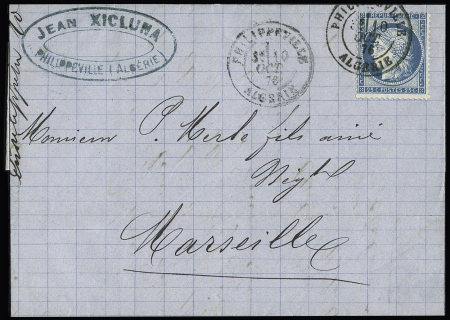 JEAN XICLUNA
PHILIPPEVILLE (ALGÉRIE)
PHILIPPEVILLE
10
OCT
76
ALGÉRIE
PHILIPPEVILLE
10
OCT
76
ALGÉRIE
25 c POSTES 25 c
Monsieur P. Merle fils ainé
Négt
Marseille